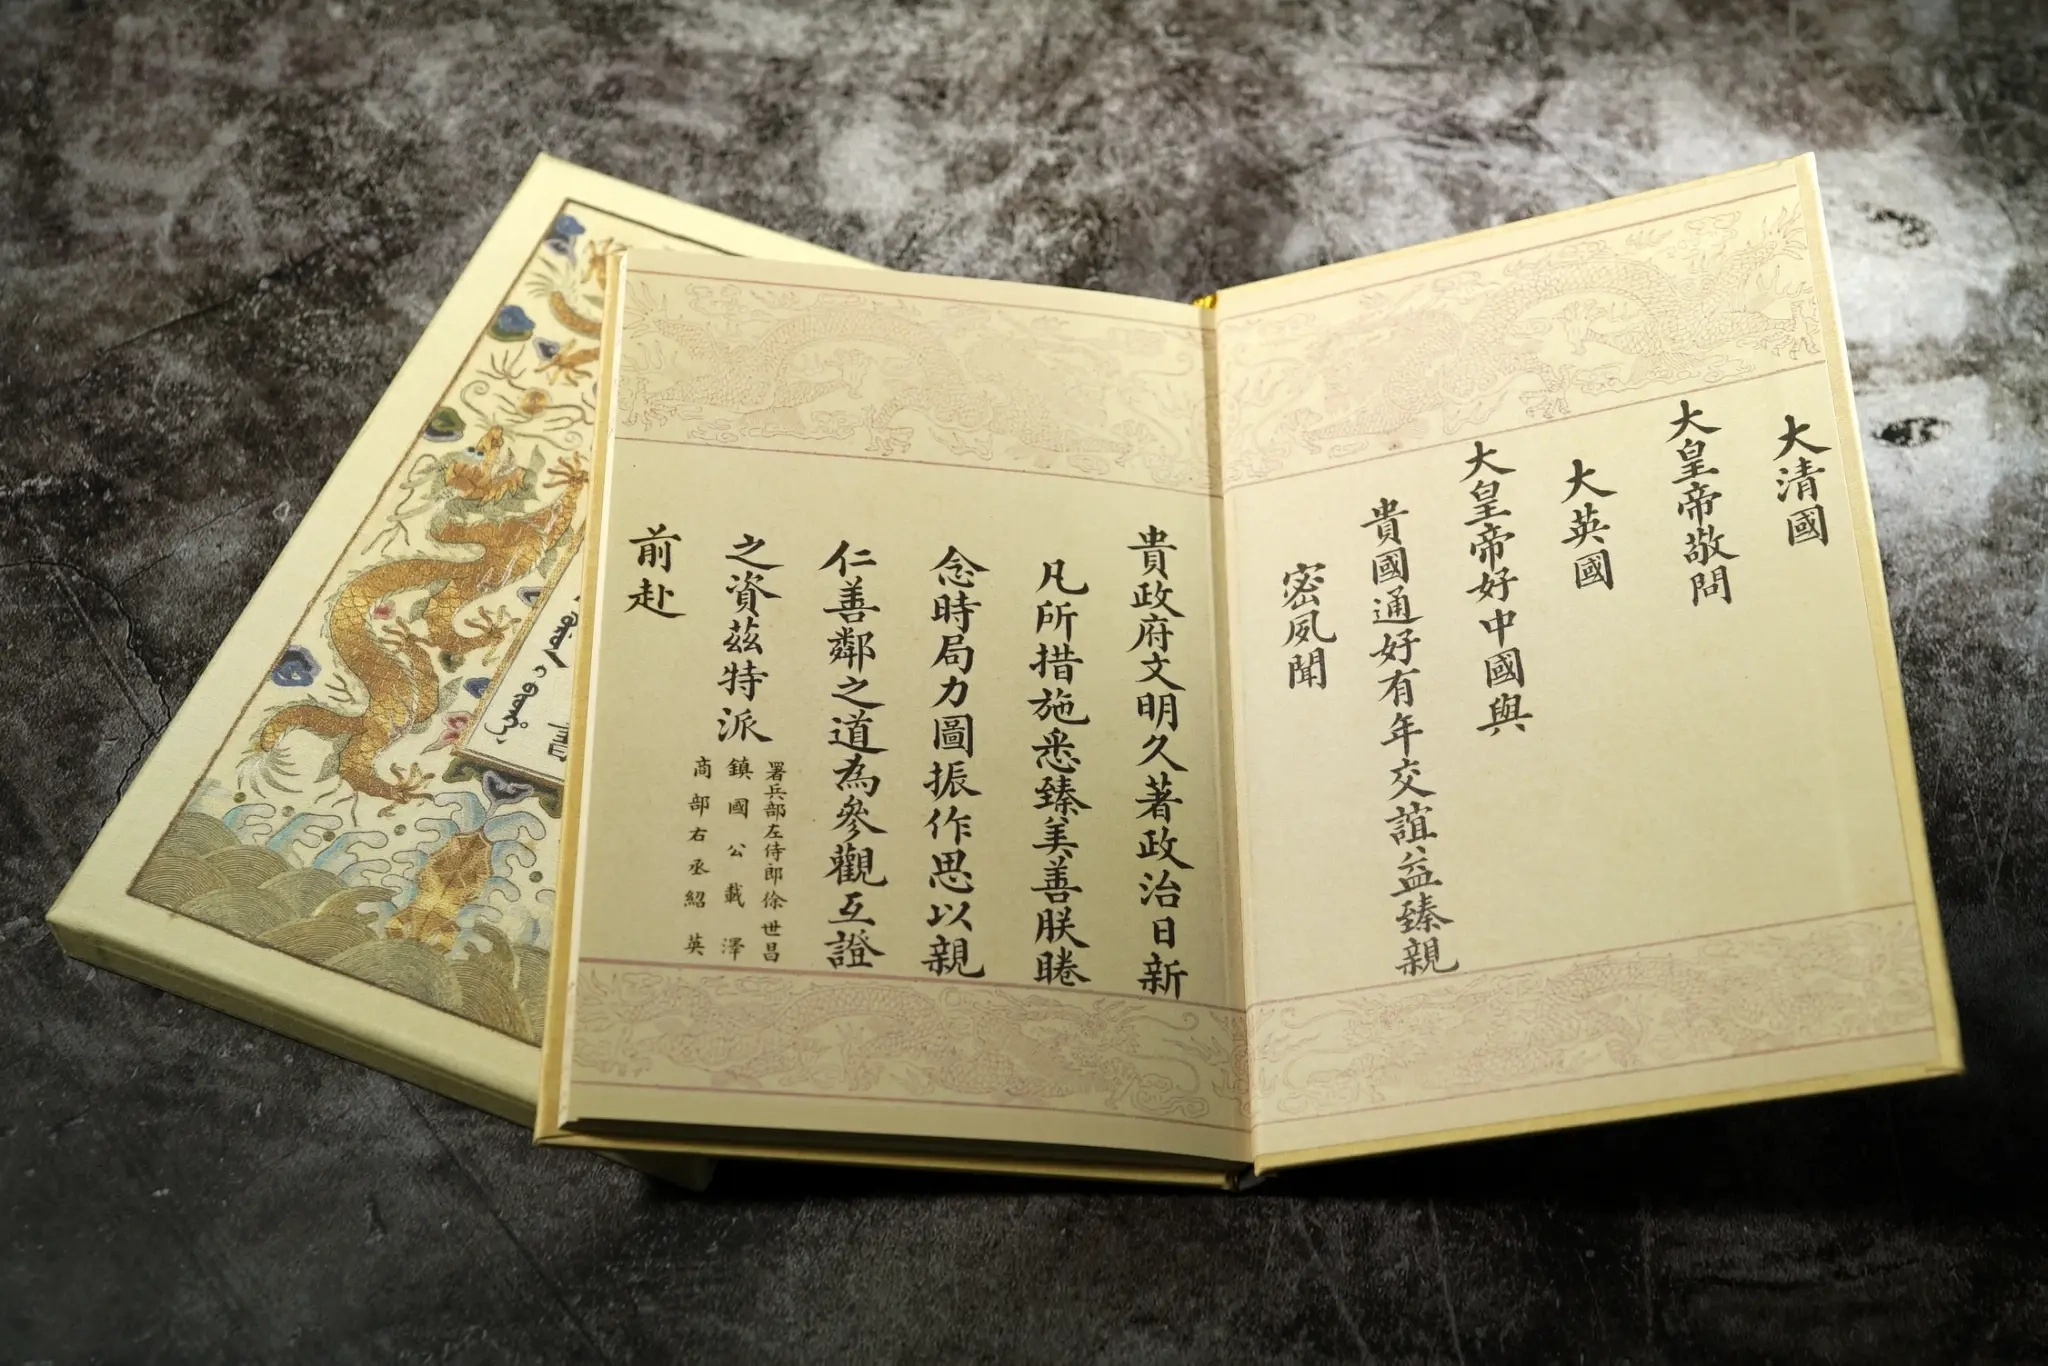 大清國
大皇帝敬問
大英國
大皇帝好中國與
貴國通好有年交誼益臻親
密夙聞
貴政府文明久著政治日新
凡所措施悉臻美善朕睠
念時局力圖振作思以親
仁善鄰之道為參觀互證
之資茲特派
署兵部左侍郎徐世昌
鎮國公載澤
商部右丞紹英
前赴
書